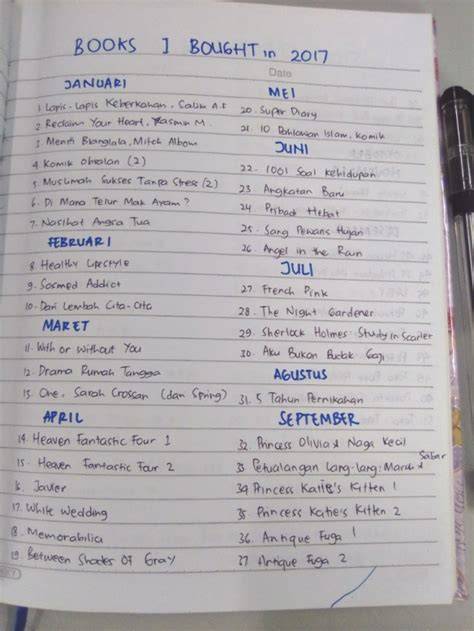 BOOKS I BOUGHT in 2017
Date
JANUARI
1. Lapis-Lapis Keberkahan, Salim A.F
2. Reclaim Your Heart, Yasmin M.
3. Menm Bhanglala, Mitch Albom
4. Komik obralan (2)
5. Muslimah Sukses Tanpa Stress (2)
6. Di Mana Telur Mak Ayam?
7. Nasihat Angsa Tua
FEBRUARI
8. Healthy Lifestyle
9. Socmed Addict
10. Dari Lembah Cita-Cita
MARET
11. With or Without You
12. Drama Rumah Tangga
13. One, Sarah Crossan (dan Spring)
APRIL
14. Heaven Fantastic Four 1
15. Heaven Fantastic Four 2
16. Javier
17. White Wedding
18. Memorabilia
19. Between Shades Of Gray
MEI
20. Super Diary
21. 10 Pahlawan Islam, Komik
JUNI
22. 1001 Soal Kehidupan
23. Angkatan Baru
24. Pribadi Hebat
25. Sang Pewaris Hujan
26. Angel in the Rain
JULI
27. French Pink
28. The Night Gardener
29. Sherlock Holmes: Study in Scarlet
30. Aku Bukan Budak Gaji
AGUSTUS
31. 5 Tahun Pernikahan
SEPTEMBER
32. Princess Olivia & Naga Kecil
33. Petualangan Lang-lang: Marah & Sabar
34. Princess Katie's Kitten 1
35. Princess Katie's Kitten 2
36. Antique Fuga 1
37. Antique Fuga 2